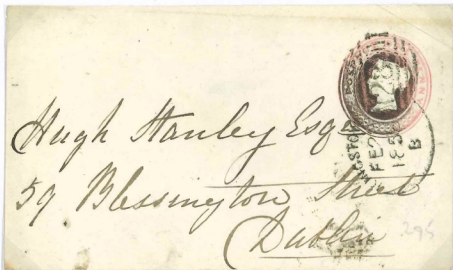 Hugh Stanley Esqr
59 Blessington Street
Dublin
FE 2
185
B
295